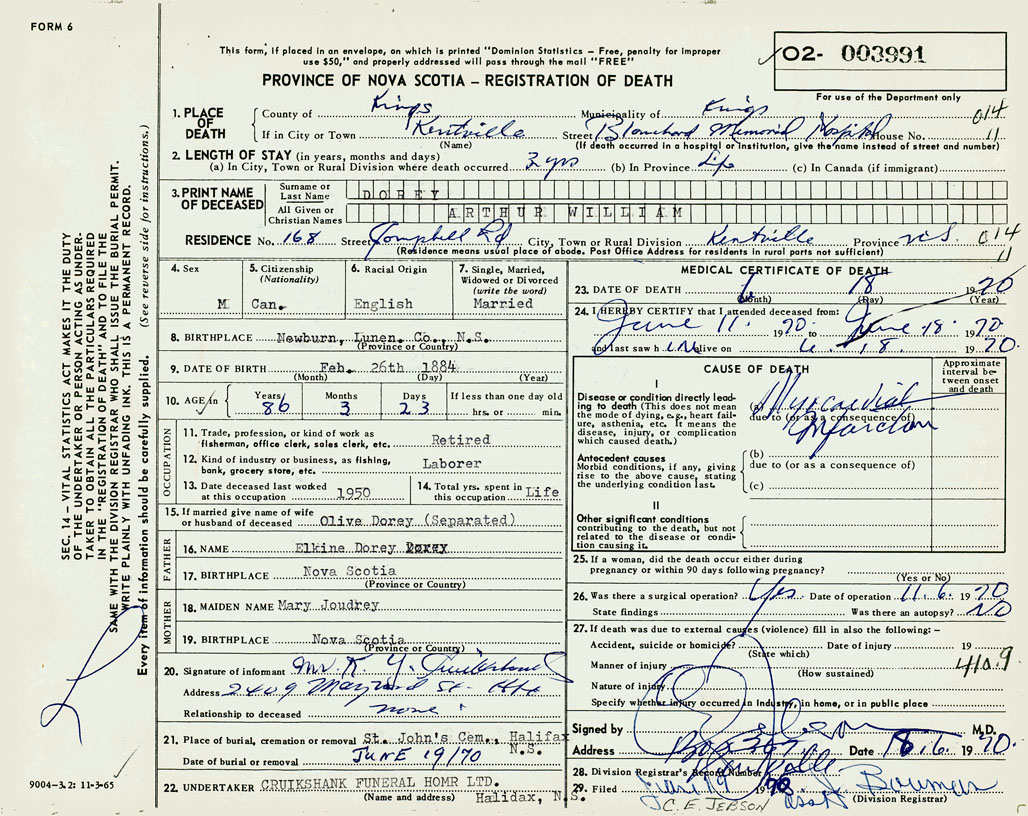 FORM 6
This form, if placed in an envelope, on which is printed "Dominion Statistics – Free, penalty for improper
use $50," and properly addressed will pass through the mail "FREE"
O2- 003991
For use of the Department only
PROVINCE OF NOVA SCOTIA – REGISTRATION OF DEATH
1. PLACE OF DEATH
County of Kings Municipality of Kings 014
If in City or Town Kentville Street Blanchard Memorial Hospital House No. 11
(Name) (If death occurred in a hospital or institution, give the name instead of street and number)
2. LENGTH OF STAY (in years, months and days)
(a) In City, Town or Rural Division where death occurred 2 yrs (b) In Province Life (c) In Canada (if immigrant)
3. PRINT NAME OF DECEASED
Surname or Last Name DOREY
All Given or Christian Names ARTHUR WILLIAM
RESIDENCE No. 168 Street Campbell Rd City, Town or Rural Division Kentville Province N.S. 014
(Residence means usual place of abode. Post Office Address for residents in rural parts not sufficient) 11
4. Sex
M
5. Citizenship
(Nationality)
Can.
6. Racial Origin
English
7. Single, Married,
Widowed or Divorced
(write the word)
Married
8. BIRTHPLACE Newburn, Lunen. Co., N.S.
(Province or Country)
9. DATE OF BIRTH Feb. 26th 1884
(Month) (Day) (Year)
10. AGE in
Years 86
Months 3
Days 23
If less than one day old
hrs. or min.
OCCUPATION
11. Trade, profession, or kind of work as
fisherman, office clerk, sales clerk, etc. Retired
12. Kind of industry or business, as fishing,
bank, grocery store, etc. Laborer
13. Date deceased last worked
at this occupation 1950
14. Total yrs. spent in
this occupation Life
15. If married give name of wife
or husband of deceased Olive Dorey (Separated)
FATHER
16. NAME Elkine Dorey
17. BIRTHPLACE Nova Scotia
(Province or Country)
MOTHER
18. MAIDEN NAME Mary Joudrey
19. BIRTHPLACE Nova Scotia
(Province or Country)
20. Signature of informant Mr. K Y.
Address 2409 Maynard St. Hfx
Relationship to deceased none
21. Place of burial, cremation or removal St. John's Cem., Halifax
N.S.
Date of burial or removal JUNE 19/70
22. UNDERTAKER CRUIKSHANK FUNERAL HOMR LTD.
(Name and address) Halidax, N.S.
MEDICAL CERTIFICATE OF DEATH
23. DATE OF DEATH 6 18 1970
(Month) (Day) (Year)
24. I HEREBY CERTIFY that I attended deceased from:
June 11 1970 to June 18 1970
and last saw him alive on 6. 18. 1970
CAUSE OF DEATH
Approximate
interval be-
tween onset
and death
I
Disease or condition directly lead-
ing to death (This does not
mean the mode of dying, e.g., heart fail-
ure, asthenia, etc. It means the
disease, injury, or complication
which caused death.)
(a) Myocardial
due to (or as a consequence of)
Infarction
Antecedent causes
Morbid conditions, if any, giving
rise to the above cause, stating
the underlying condition last.
(b)
due to (or as a consequence of)
(c)
II
Other significant conditions
contributing to the death, but not
related to the disease or condi-
tion causing it.
25. If a woman, did the death occur either during
pregnancy or within 90 days following pregnancy?
(Yes or No)
26. Was there a surgical operation? Yes Date of operation 11.6. 1970
State findings Was there an autopsy? NO
27. If death was due to external causes (violence) fill in also the following: –
Accident, suicide or homicide? Date of injury 19
(State which)
Manner of injury 410.9
(How sustained)
Nature of injury
Specify whether injury occurred in Industry, in home, or in public place
Signed by M.D.
Address Box 307 Kentville Date 18.6. 1970.
28. Division Registrar's Record Number
29. Filed June 19 1970 J. Bowmen
C. E. JEBSON Asst (Division Registrar)
SEC. 14 – VITAL STATISTICS ACT MAKES IT THE DUTY
OF THE UNDERTAKER OR PERSON ACTING AS UNDER-
TAKER TO OBTAIN ALL THE PARTICULARS REQUIRED
IN THE "REGISTRATION OF DEATH" AND TO FILE THE
SAME WITH THE DIVISION REGISTRAR WHO SHALL ISSUE THE BURIAL PERMIT.
WRITE PLAINLY WITH UNFADING INK. THIS IS A PERMANENT RECORD.
Every item of information should be carefully supplied. (See reverse side for instructions.)
9004-3.2: 11-3-65